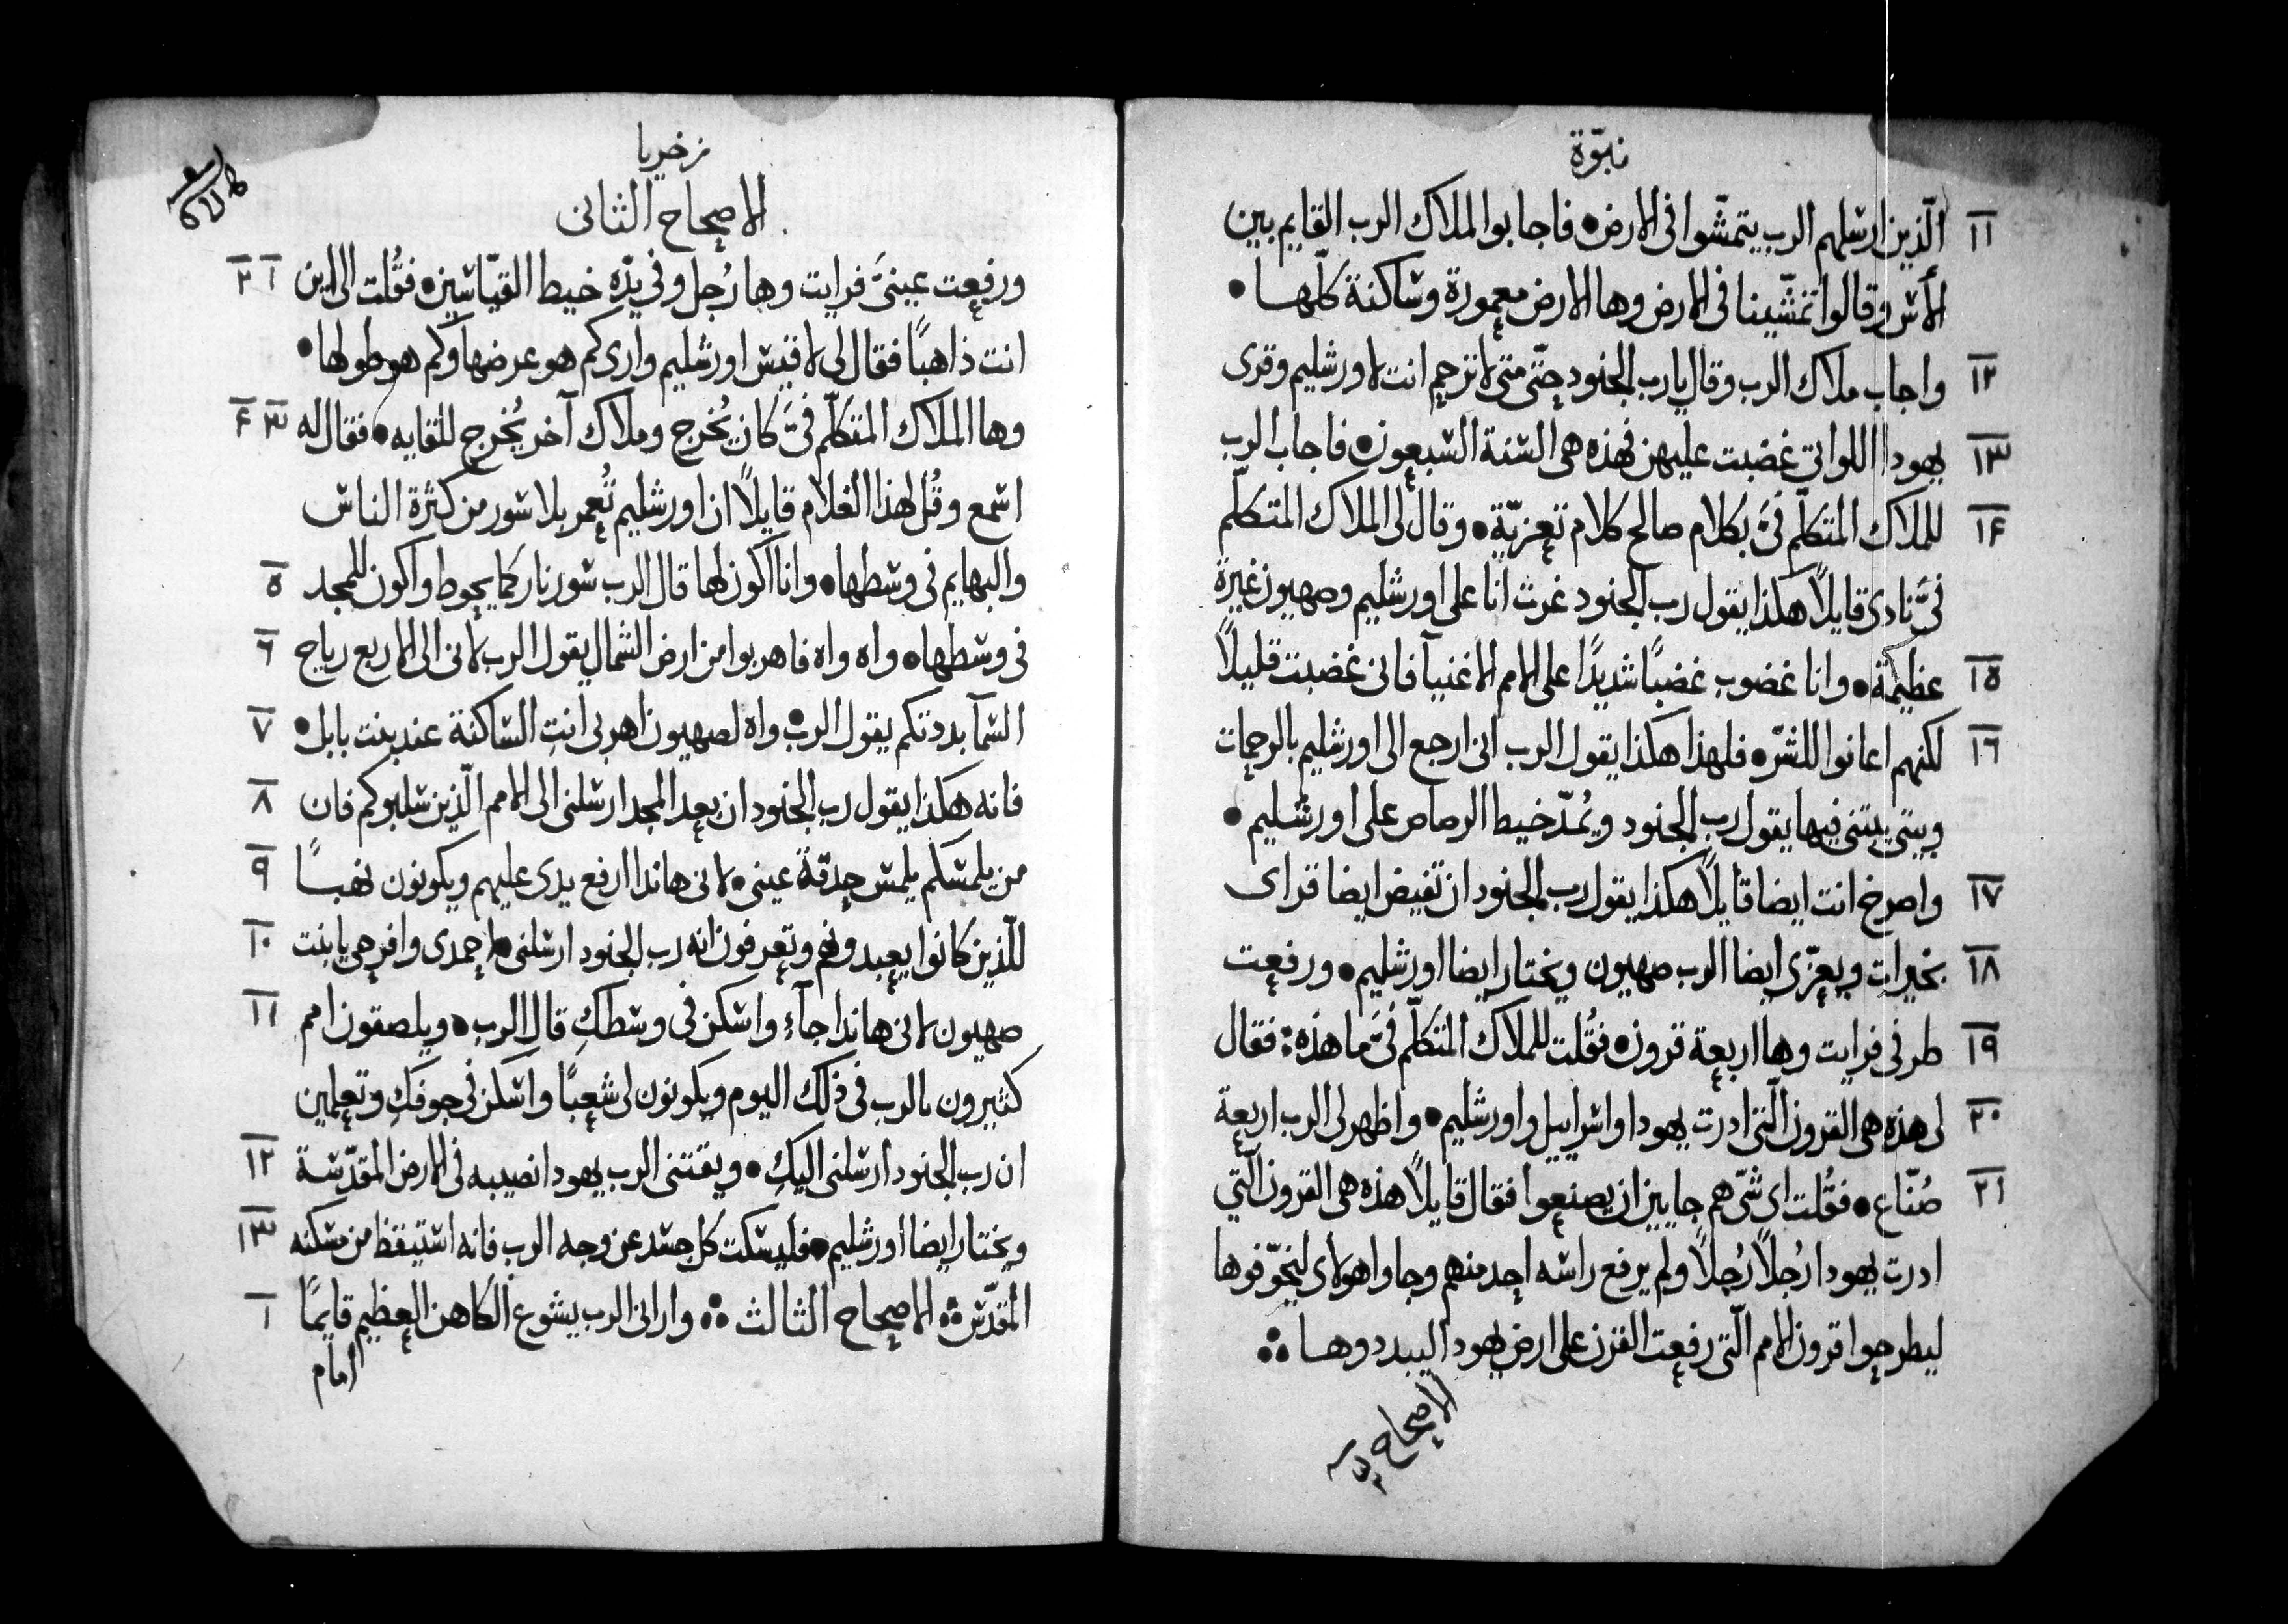 نبوّة
١١ الّذين ارسلهم الرب يتمشّوا فى الارض • فاجابوا لملاك الرب القايم بين
الأس وقالوا تمشّينا فى الارض وها الارض معمورة وساكنة كلّها •
١٢ واجاب ملاك الرب وقال يا رب الجنود حتّى متى لا ترحم انت لاورشليم وقرى
١٣ يهودا اللواتى غضبت عليهن فهذه هى السنة السبعون • فاجاب الرب
١۴ للملاك المتكلّم فىَّ بكلام صالح كلام تعزيّة • وقال لى الملاك المتكلّم
فىَّ نادى قايلًا هكذا يقول رب الجنود غرت انا على اورشليم وصهيون غيرة
١٥ عظيمة • وانا غضوب غضبًا شديدًا على الامم الاغنيآ فانى غضبت قليلًا
١٦ لكنهم اعانوا للشرّ • فلهذا هكذا يقول الرب انى ارجع الى اورشليم بالرحمات
وبيتى يبتنى فيها يقول رب الجنود ويُمدّ خيط الرصاص على اورشليم •
١٧ واصرخ انت ايضا قايلًا هكذا يقول رب الجنود ان تفيض ايضا قراى
١٨ بخيرات ويعزّى ايضا الرب صهيون ويختار ايضا اورشليم • ورفعت
١٩ طرفى فرايت وها اربعة قرون • فقُلت للملاك المتكلّم فىَّ ما هذه : فقال
٢٠ لى هذه هى القرون الّتى ادرت يهودا واسراييل واورشليم • واظهر لى الرب اربعة
٢١ صُنّاع • فقُلت اى شى هم جايين ان يصنعوا فقال قايلًا هذه هى القرون الّتي
ادرت يهودا رُجلًا رُجلًا ولم يرفع راسه احد منهم وجاوا هولاى ليخوّفوها
ليطرحوا قرون الامم الّتى رفعت القرن على ارض يهودا ليبددوها
الاصحاح
زخريا
الاصحاح الثانى
١ ٢ ورفعت عينىَّ فرايت وها رُجل وفي يدّه خيط القيّاسين • فقُلت الى اين
انت ذاهبًا فقال لى لاقيس اورشليم وارى كم هو عرضها وكم هو طولها •
٣ ۴ وها الملاك المتكلّم فىَّ كان يُخرج وملاك آخر يُخرج للقايه • فقال له
اسمع وقُل لهذا الغلام قايلًا ان اورشليم تُعمر بلا سور من كثرة الناس
٥ والبهايم فى وسطها • وانا اكون لها قال الرب سور نار كما يحوط واكون للمجد
٦ فى وسطها • واه واه فاهربوا من ارض الشمال يقول الرب لانى الى الاربع رياح
٧ السمآ بددتكم يقول الرب • واه لصهيون اهربى انتِ الساكنة عند بنت بابل •
٨ فانه هكذا يقول رب الجنود ان بعد المجد ارسلنى الى الامم الّذين سلبوكم فان
٩ من يلمسكم يلمس حدقّة عينى • لانى هانذا ارفع يدى عليهم ويكونون نهبًا
١٠ للّذين كانوا يعبدونهم وتعرفون انه رب الجنود ارسلنى • احمدى وافرحى يا بنت
١١ صهيون لانى هانذا جآء واسكن فى وسطكِ قال الرب • ويلصقون امم
كثيرون بالرب فى ذلك اليوم ويكونون لى شعبًا واسكن فى جوفكِ وتعلمين
١٢ ان رب الجنود ارسلنى اليكِ • ويقتنى الرب يهودا نصيبه فى الارض المقدّسة
١٣ ويختار ايضا اورشليم • فليسكت كل جسد عن وجه الرب فانه استيقظ من مسكنه
١ المقدّس الاصحاح الثالث وارانى الرب يشوع الكاهن العظيم قايمًا
امام